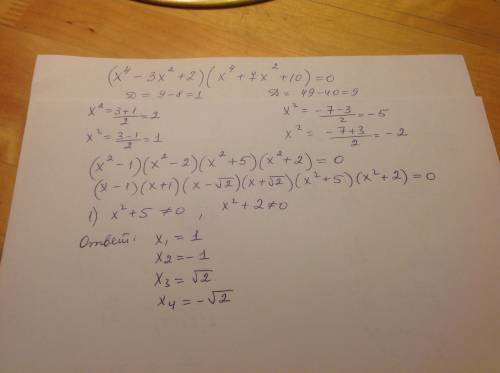 (x⁴ − 3x² + 2)(x⁴ + 7x² + 10) = 0
D = 9 − 8 = 1    D = 49 − 40 = 9
x² = (3+1)/2 = 2    x² = (−7−3)/2 = −5
x² = (3−1)/2 = 1    x² = (−7+3)/2 = −2
(x² − 1)(x² − 2)(x² + 5)(x² + 2) = 0
(x − 1)(x + 1)(x − √2)(x + √2)(x² + 5)(x² + 2) = 0
1) x² + 5 ≠ 0 , x² + 2 ≠ 0
Ответ: x₁ = 1
x₂ = −1
x₃ = √2
x₄ = −√2